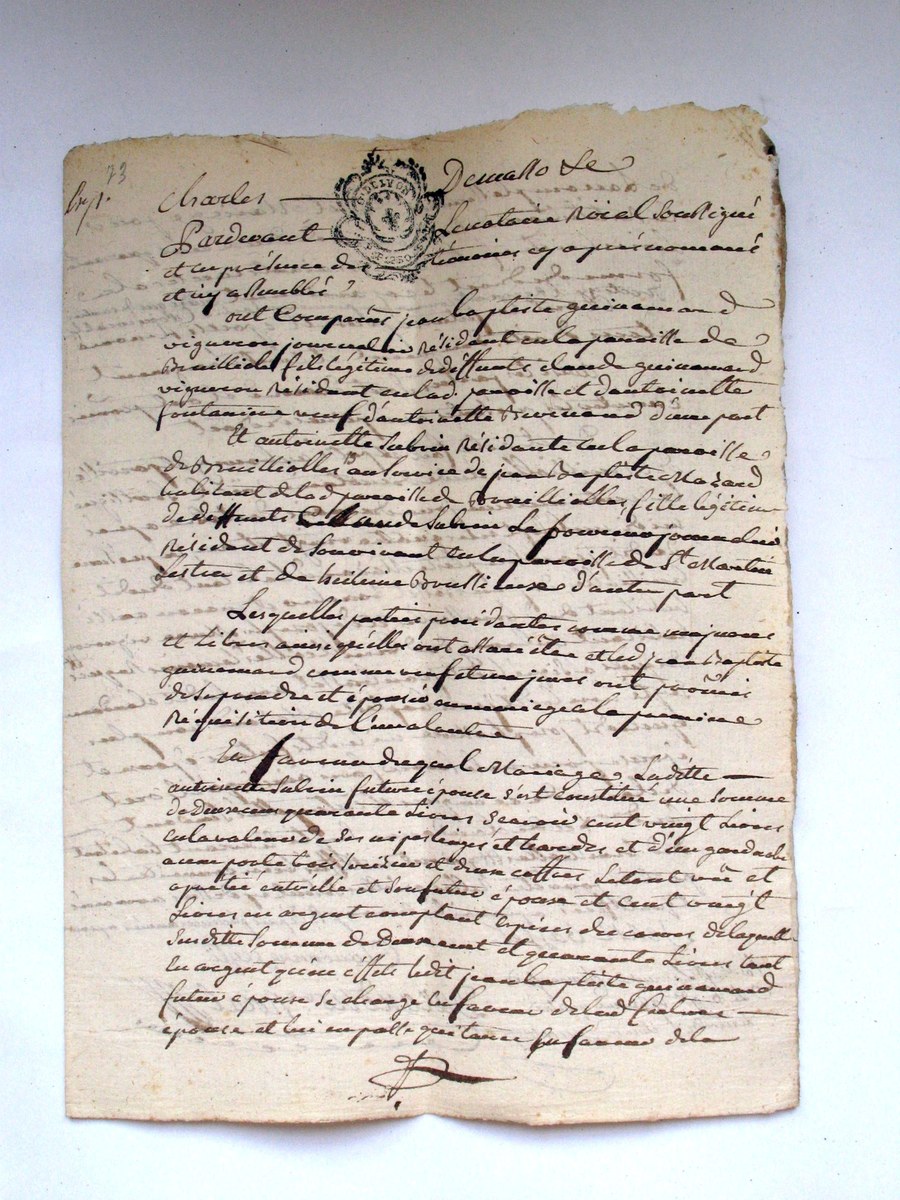 73
Charles Demasso De
G. DE LYON
Pardevant Le notaire Roial Soussigné
et en présence des témoins cy après nommés
et icy assemblés
ont Comparus jean baptiste guinamard
vigneron journalier Résidant en la paroisse de
fils légitime de deffunts claude guinamard
vigneron Résidant en lad. paroisse et d'antoinette
veuf d'antoinette d'une part
Et antoinette Subrin Résidante en la paroisse
de Brullioles au Service de jean Baptiste Mazard
habitant de lad paroisse de Brullioles, fille légitime
de deffunts Claude Subrin La journalier
Résident de Son vivant en la paroisse de St Martin
Lestra et de d'autre part
Lesquelles parties procédantes comme majeures
et Libres ainsi qu'elles ont assuré être et led jean Baptiste
guinamard comme veuf et majeur ont promis
de se prendre et épouser en mariage a la première
Réquisition de l'un a l'autre
En faveur duquel Mariage Laditte
antoinette Subrin future épouse s'est constitué une Somme
de Deux cent quarante Livres Scavoir cent vingt Livres
en la valeur de Ses nipes linges et hardes et d'un garderobe
a une porte bois Cerisier et d'un coffre, Le tout vû et
apretié entr'elle et Son futur épouse et cent vingt
Livres en argent comptant Espèces du cours de laquelle
Susditte Somme de Deux cent et quarante Livres tant
En argent qu'en effets ledit jean baptiste guinamard
futur épouse Se charge en faveur de lad future
épouse et lui en passe quittance En faveur de le